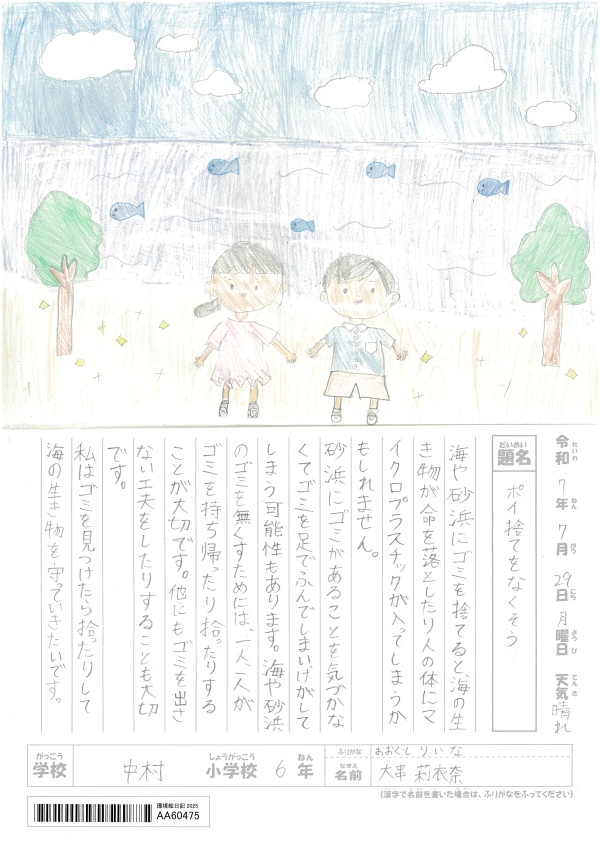 令和 れいわ 7年 ねん 7月 がつ 29日 にち 月曜日 ようび 天気 てんき 晴れ
題名 だいめい ポイ捨てをなくそう
海や砂浜にゴミを捨てると、海の生
き物が命を落としたり人の体にマ
イクロプラスチックが入ってしまうか
もしれません。
砂浜にゴミがあることを気づかな
くてゴミを足でふんでしまいけがして
しまう可能性もあります。海や砂浜
のゴミを無くすためには、一人一人が
ゴミを持ち帰ったり拾ったりする
ことが大切です。他にもゴミを出さ
ない工夫をしたりすることも大切
です。
私はゴミを見つけたら拾ったりして
海の生き物を守っていきたいです。
がっこう 学校 中村 しょうがっこう 小学校 6 ねん 年
ふりがな おおぐし りいな
なまえ 名前 大串 莉衣奈
(漢字で名前を書いた場合は、ふりがなをふってください)
環境絵日記 2025
AA60475